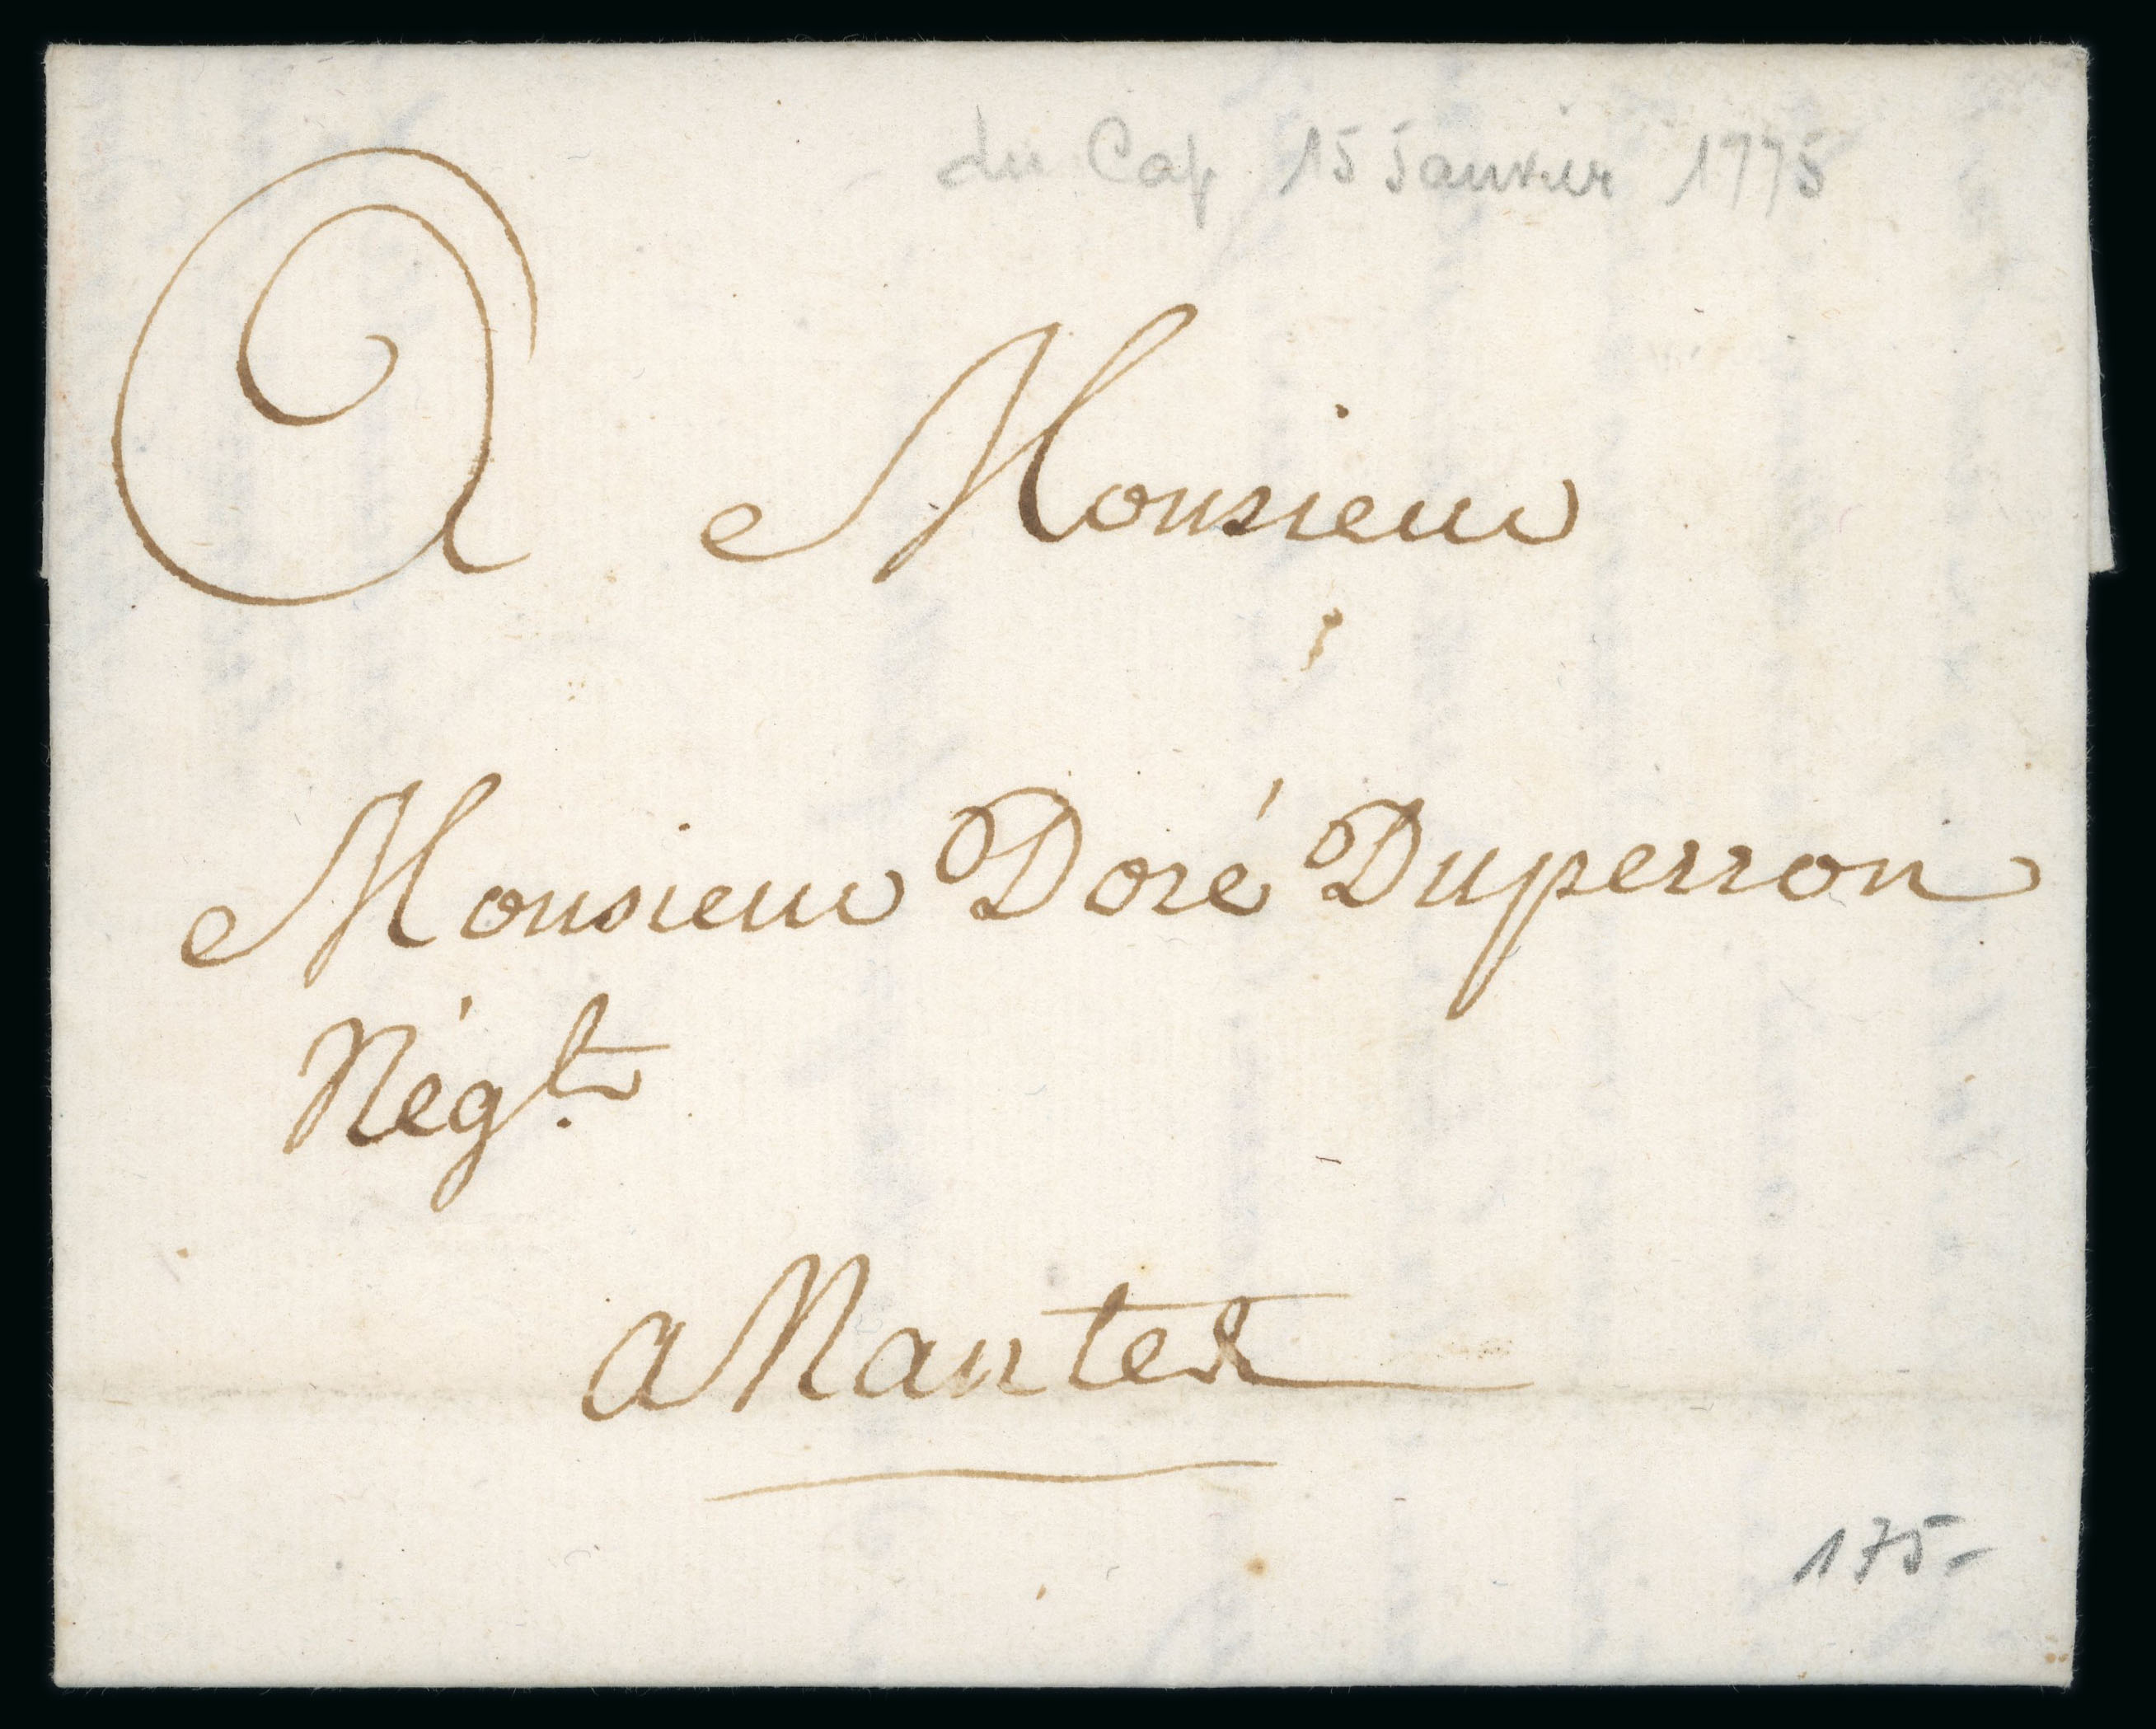 du Cap 15 Janvier 1775
A Monsieur
Monsieur Doré Duperron
Négt.
a Nantes
175-